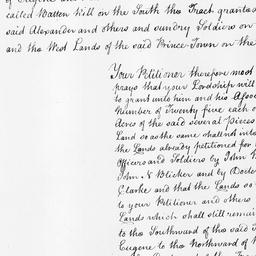 called Batten Kill on the South the Tract granted
said Alexander and others and sundry Soldiers on
and the West Lands of the said Prince Town on the
Your Petitioner therefore most
prays that your Lordship will
to grant unto him and his Associ
Number of Twenty five each o
Acres of the said several pieces
Land so as the same shall not inte
the Lands already petitioned for
Officers and Soldiers by John
John N Blicker and by Docto
Clarke and that the Lands so
to your Petitioner and others
Lands which shall still remain
to the Southward of the said
Eugene to the Northward of